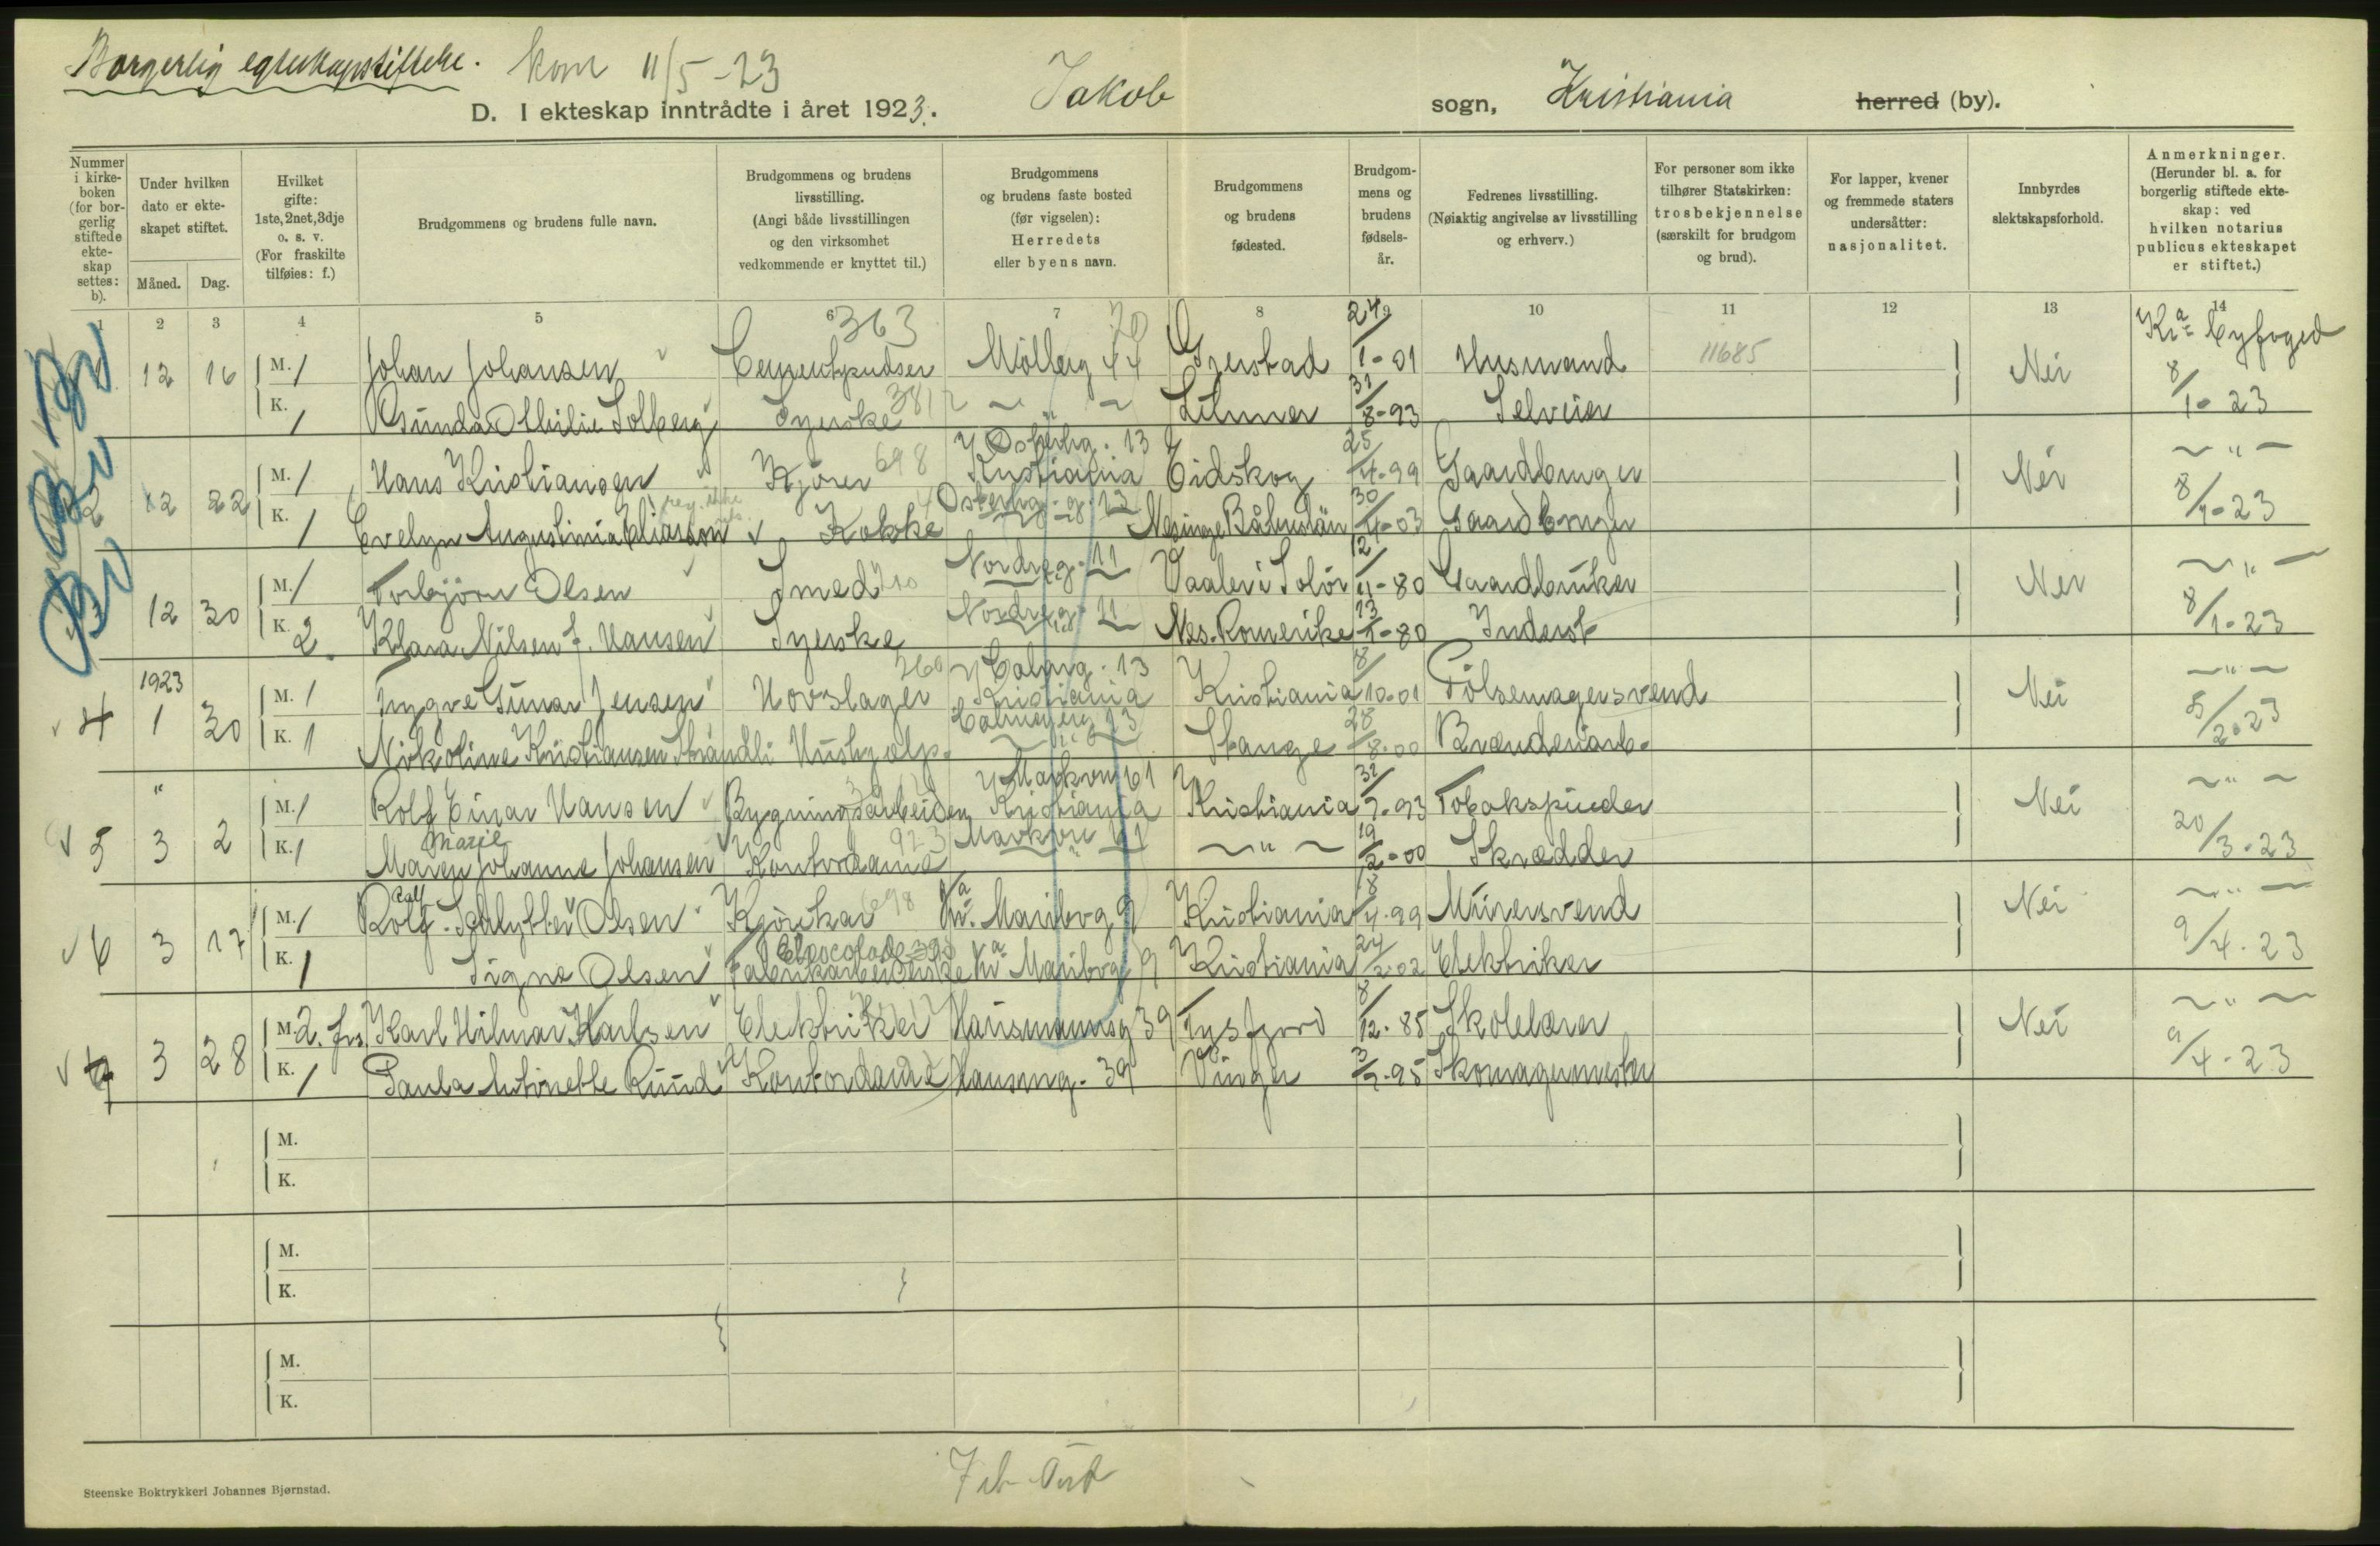 Borgerlig egteskapsstiftelse. kom 11/5-23
D. I ekteskap inntrådte i året 1923. Jakob sogn, Kristiania herred (by).
Nummer i kirke-boken (for bor-gerlig stiftede ekte-skap settes: b).
Under hvilken dato er ekte-skapet stiftet.
Måned. Dag.
Hvilket gifte: 1ste, 2net, 3dje o. s. v. (For fraskilte tilføies: f.)
Brudgommens og brudens fulle navn.
Brudgommens og brudens livsstilling. (Angi både livsstillingen og den virksomhet vedkommende er knyttet til.)
Brudgommens og brudens faste bosted (før vigselen): Herredets eller byens navn.
Brudgommens og brudens fødested.
Brudgom-mens og brudens fødsels-år.
Fedrenes livsstilling. (Nøiaktig angivelse av livsstilling og erhverv.)
For personer som ikke tilhører Statskirken: trosbekjennelse (særskilt for brudgom og brud).
For lapper, kvener og fremmede staters undersåtter: nasjonalitet.
Innbyrdes slektskapsforhold.
Anmerkninger. (Herunder bl. a. for borgerlig stiftede ekte-skap: ved hvilken notarius publicus ekteskapet er stiftet.)
1 2 3 4 5 6 7 8 9 10 11 12 13 14
363 70
12 16 M. 1 Johan Johansen Cementpudser Møllerg 44 24/1-01 Husmand 11685 Nei Kra Byfoged
K. 1 Gunda Othilie Solberg Syerske 381 " 31/8-93 Selveier 8/1-23
Østerhg. 13
2 12 22 M. 1 Hans Kristiansen Kjører 698 Kristiania Eidskog 25/4-99 Gaardbruger Nei "
K. 1 Evelyn Augustinia Eliasson Kokke Østerhg. 13 Båhuslän 30/4-03 Gaardbruger 8/1-23
12 30 M. 1 Torbjörn Olsen Smed Nordreg. 11 Vaaler i Solör 12/4-80 Gaardbruker Nei "
K. 2. Klara Nilsen f. Hansen Syerske Nordreg. 11 Nes. Romerike 13/1-80 Inderst 8/1-23
1923 760 Calmg. 13
4 1 30 M. 1 Yngve Gunar Jensen Hovslager Kristiania Kristiania 8/10-01 Pölsemagersvend Nei "
K. 1 Nikoline Kristiansen Strandli Hushjælp. Calmeyerg 13 Stange 28/8-00 5/2-23
" Markvn 61
5 3 2 M. 1 Rolf Einar Hansen Bygningsarbeider Kristiania Kristiania 31/7-93 Tobakspinder Nei "
Marie 923
K. 1 Maren Johanne Johansen Kontordame Markvn 61 " 19/2-00 Skrædder 20/3-23
6 3 17 M. 1 Rolf Olsen Kjörekar 698 Maribog 9 Kristiania 8/4-99 Mürersvend Nei "
Chocolade
K. 1 Signe Olsen Fabrikarbeiderske Maribog 9 Kristiania 24/2-02 Elektriker 9/4-23
7 3 28 M. 2. frs. Karl Hilmar Karlsen Elektriker Hausmannsg 39 Tysfjord 8/12-85 Skolelærer Nei "
K. 1 Paula Antonette Ruud Kontordame Hausmg. 39 Vinger 3/7-95 Skomagermester 9/4-23
M.
K.
M.
K.
M.
K.
Steenske Boktrykkeri Johannes Bjørnstad.